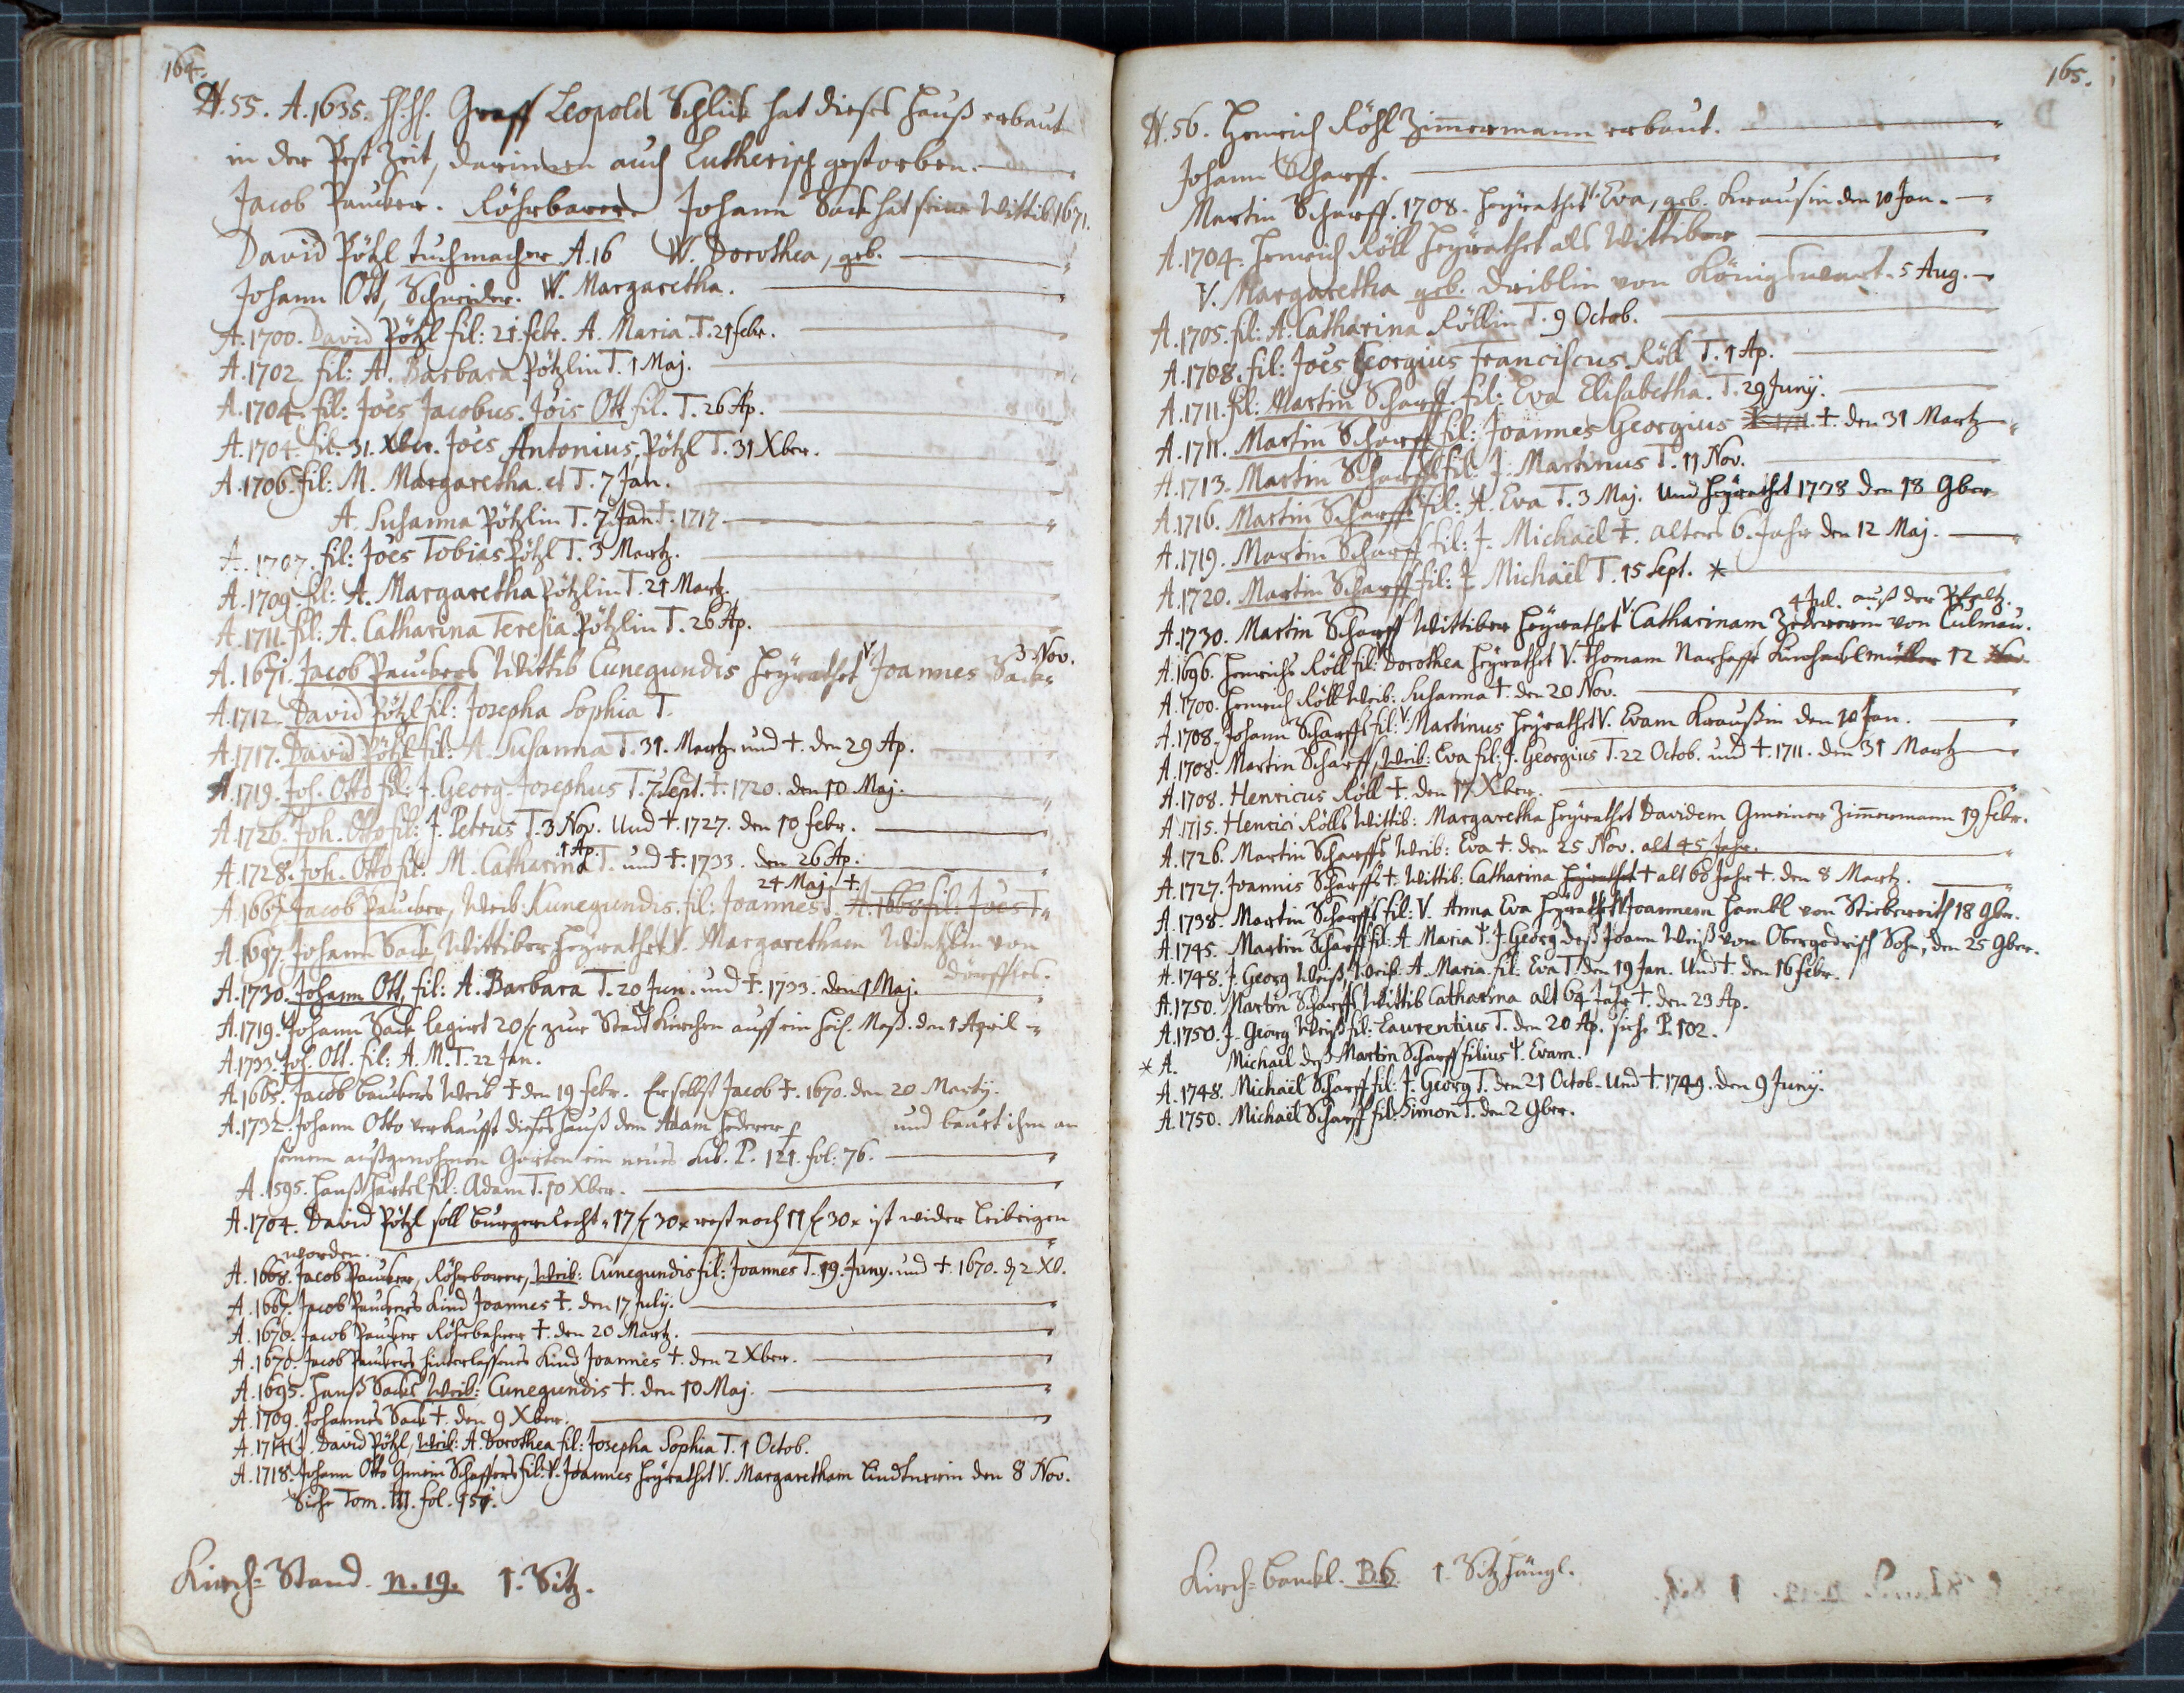 164.
N. 55. A. 1635. H. H. Graff Leopold Schlick hat dieses Hauß erbaut
in der Pest Zeit, darinnen auch Lutherisch gestorben.
Jacob Paucker. Röhrbarer. Johann Sack hat seine Wittib 1671.
David Pötzl Tuchmacher A. 16 W. Dorothea, geb.
Johann Ott, Schneider. W. Margaretha.
A. 1700. David Pötzl fil: 21. febr. A. Maria T. 21 febr.
A. 1702. fil: A. Barbara Pötzlin T. 1 Maj.
A. 1704. fil: Joes Jacobus. Jois Ott fil. T. 26 Ap.
A. 1704. fil. 31. Xber. Joes Antonius, Pötzl T. 31 Xber.
A. 1706. fil: M. Margaretha. et T. 7 Jan.
A. Susanna Pötzlin T. 7. Jan. †. 1717.
A. 1707. fil: Joes Tobias Pötzl T. 3 Martz.
A. 1709. fil: A. Margaretha Pötzlin T. 21 Martz.
A. 1711. fil: A. Catharina Teresia Pötzlin T. 26 Ap.
3. Nov.
A. 1671. Jacob Pauckers Wittib Cunegundis heÿrathet V. Joannes Sack
A. 1712. David Pötzl fil: Josepha Sophia T.
A. 1717. David Pötzl fil: A. Susanna T. 31. Martz und †. den 29 Ap.
A. 1719. Joh. Otto fil: J. Georg Josephus T. 7. Sept. †. 1720. den 10 Maj.
A. 1726. Joh. Otto fil: J. Petrus T. 3 Nov. Und †. 1727. den 10 febr.
1 Ap.
A. 1728. Joh. Otto fil: M. Catharina T. und †. 1733. den 26 Ap.
24 Maj. †.
A. 1667. Jacob Paucker, Weib: Kunegundis. fil: Joannes T. A. 1668 fil: Joes T.
A. 1697. Johann Sack, Wittiber heÿrathet V. Margaretham von
A. 1730. Johann Ott, fil: A. Barbara T. 20 Jun. und †. 1733. den 1 Maj.
A. 1719. Johann Sack legirt 20 f zur Stadt Kirchen auff ein heil. Meß. den 1 April
A. 1733. Joh. Ott. fil: A. M. T. 22 Jan.
A. 1665. Jacob Bauckers Weib † den 19 febr. Er selbst Jacob †. 1670. den 20 Martÿ.
A. 1732. Johann Otto verkaufft dieses Hauß dem Adam Hederer und bauet ihm an
seinem außgenohmen Garten ein neues Sub. P. 121. fol: 76.
A. 1595. Hanß Härtel fil: Adam T. 10 Xber.
A. 1704. David Pötzl soll Burgerrecht 17 f 30 x rest noch 11 f 30 x ist wider leibeigen
worden.
A. 1668. Jacob Paucker, Röhrbarer, Weib: Cunegundis fil: Joannes T. 19. Juny. und †. 1670. 2 Xb.
A. 1667. Jacob Pauckers Kind Joannes †. den 17 July.
A. 1670. Jacob Paucker Röhrbahrer †. den 20 Martz.
A. 1670. Jacob Pauckers hinterlassenes Kind Joannes †. den 2 Xber.
A. 1695. Hanß Sacks Weib: Cunegundis †. den 10 Maj.
A. 1709. Johannes Sack †. den 9 Xber.
A. 1714. David Pötzl, Weib: A. Dorothea fil: Josepha Sophia T. 1 Octob.
A. 1718. Johann Otto Gmein Schaffers fil: V. Joannes heÿrathet V. Margaretham Lindtnerin den 8 Nov.
Siehe Tom. III. fol. 151.
Kirch-Stand. n. 19. 1. Sitz.
165.
N. 56. Henrich Röhl Zimmermann erbaut.
Johann Scharff.
Martin Scharff. 1708. heÿrathet V. Eva, geb. Krausin den 10 Jan.
A. 1704. Henrich Röll heÿrathet als Wittiber
V. Margaretha geb. Driblin von Königswart. 5 Aug.
A. 1705. fil: A. Catharina Röllin T. 9 Octob.
A. 1708. fil: Joes Georgius Franciscus Röll T. 1 Ap.
A. 1711. fil: Martin Scharff. fil: Eva Elisabetha. T. 29 Junÿ.
A. 1711. Martin Scharff fil: Joannes Georgius †. den 31 Martz
A. 1713. Martin Scharff fil: J. Martinus T. 11 Nov.
A. 1716. Martin Scharff fil: A. Eva T. 3 Maj. Und heÿrathet 1738 den 18 9ber
A. 1719. Martin Scharff fil: J. Michaël †. alters 6. Jahr den 12 Maj.
A. 1720. Martin Scharff fil: J. Michaël T. 15 Sept. *
4 Jul. auß der Pfaltz.
A. 1730. Martin Scharff Wittiber heÿrathet V. Catharinam von Culmau.
A. 1696. Henrichs Röll fil: Dorothea heÿrathet V. Thomam 12 Nov.
A. 1700. Henrich Röll Weib: Susanna †. den 20 Nov.
A. 1708. Johann Scharffs fil: V. Martinus heÿrathet V. Evam Kraußin den 10 Jan.
A. 1708. Martin Scharff, Weib: Eva fil: J. Georgius T. 22 Octob. und †. 1711. den 31 Martz
A. 1708. Henricus Röll †. den 17. Xber.
A. 1715. Henrici Rölls Wittib: Margaretha heÿrathet Davidem Gmeiner Zimmermann 19 febr.
A. 1726. Martin Scharffs Weib: Eva †. den 25 Nov. alt 45 Jahr.
A. 1727. Joannis Scharffs †. Wittib: Catharina heÿrathet † alt 60 Jahr †. den 8 Martz.
A. 1738. Martin Scharffs fil: V. Anna Eva heÿrathet V. Joannem Hambl von 18 9br.
A. 1745. Martin Scharff fil: A. Maria J. Georg deß Joann Weiß von Obergodrisch Sohn, den 25 9ber.
A. 1748. J. Georg Weiß, Weib: A. Maria. fil: Eva T. den 19 Jan. Und †. den 16 febr.
A. 1750. Martin Scharffs Wittib Catharina alt 64 Jahr †. den 23 Ap.
A. 1750. J. Georg Weiß fil: Laurentius T. den 20 Ap. siehe P. 102.
* A. Michael deß Martin Scharff filius Evam.
A. 1748. Michaël Scharff fil: J. Georg T. den 21 Octob. Und †. 1749. den 9 Junÿ.
A. 1750. Michaël Scharff fil: Simon T. den 2 9ber.
Kirch-Banckl. B. 6. 1. Sitz